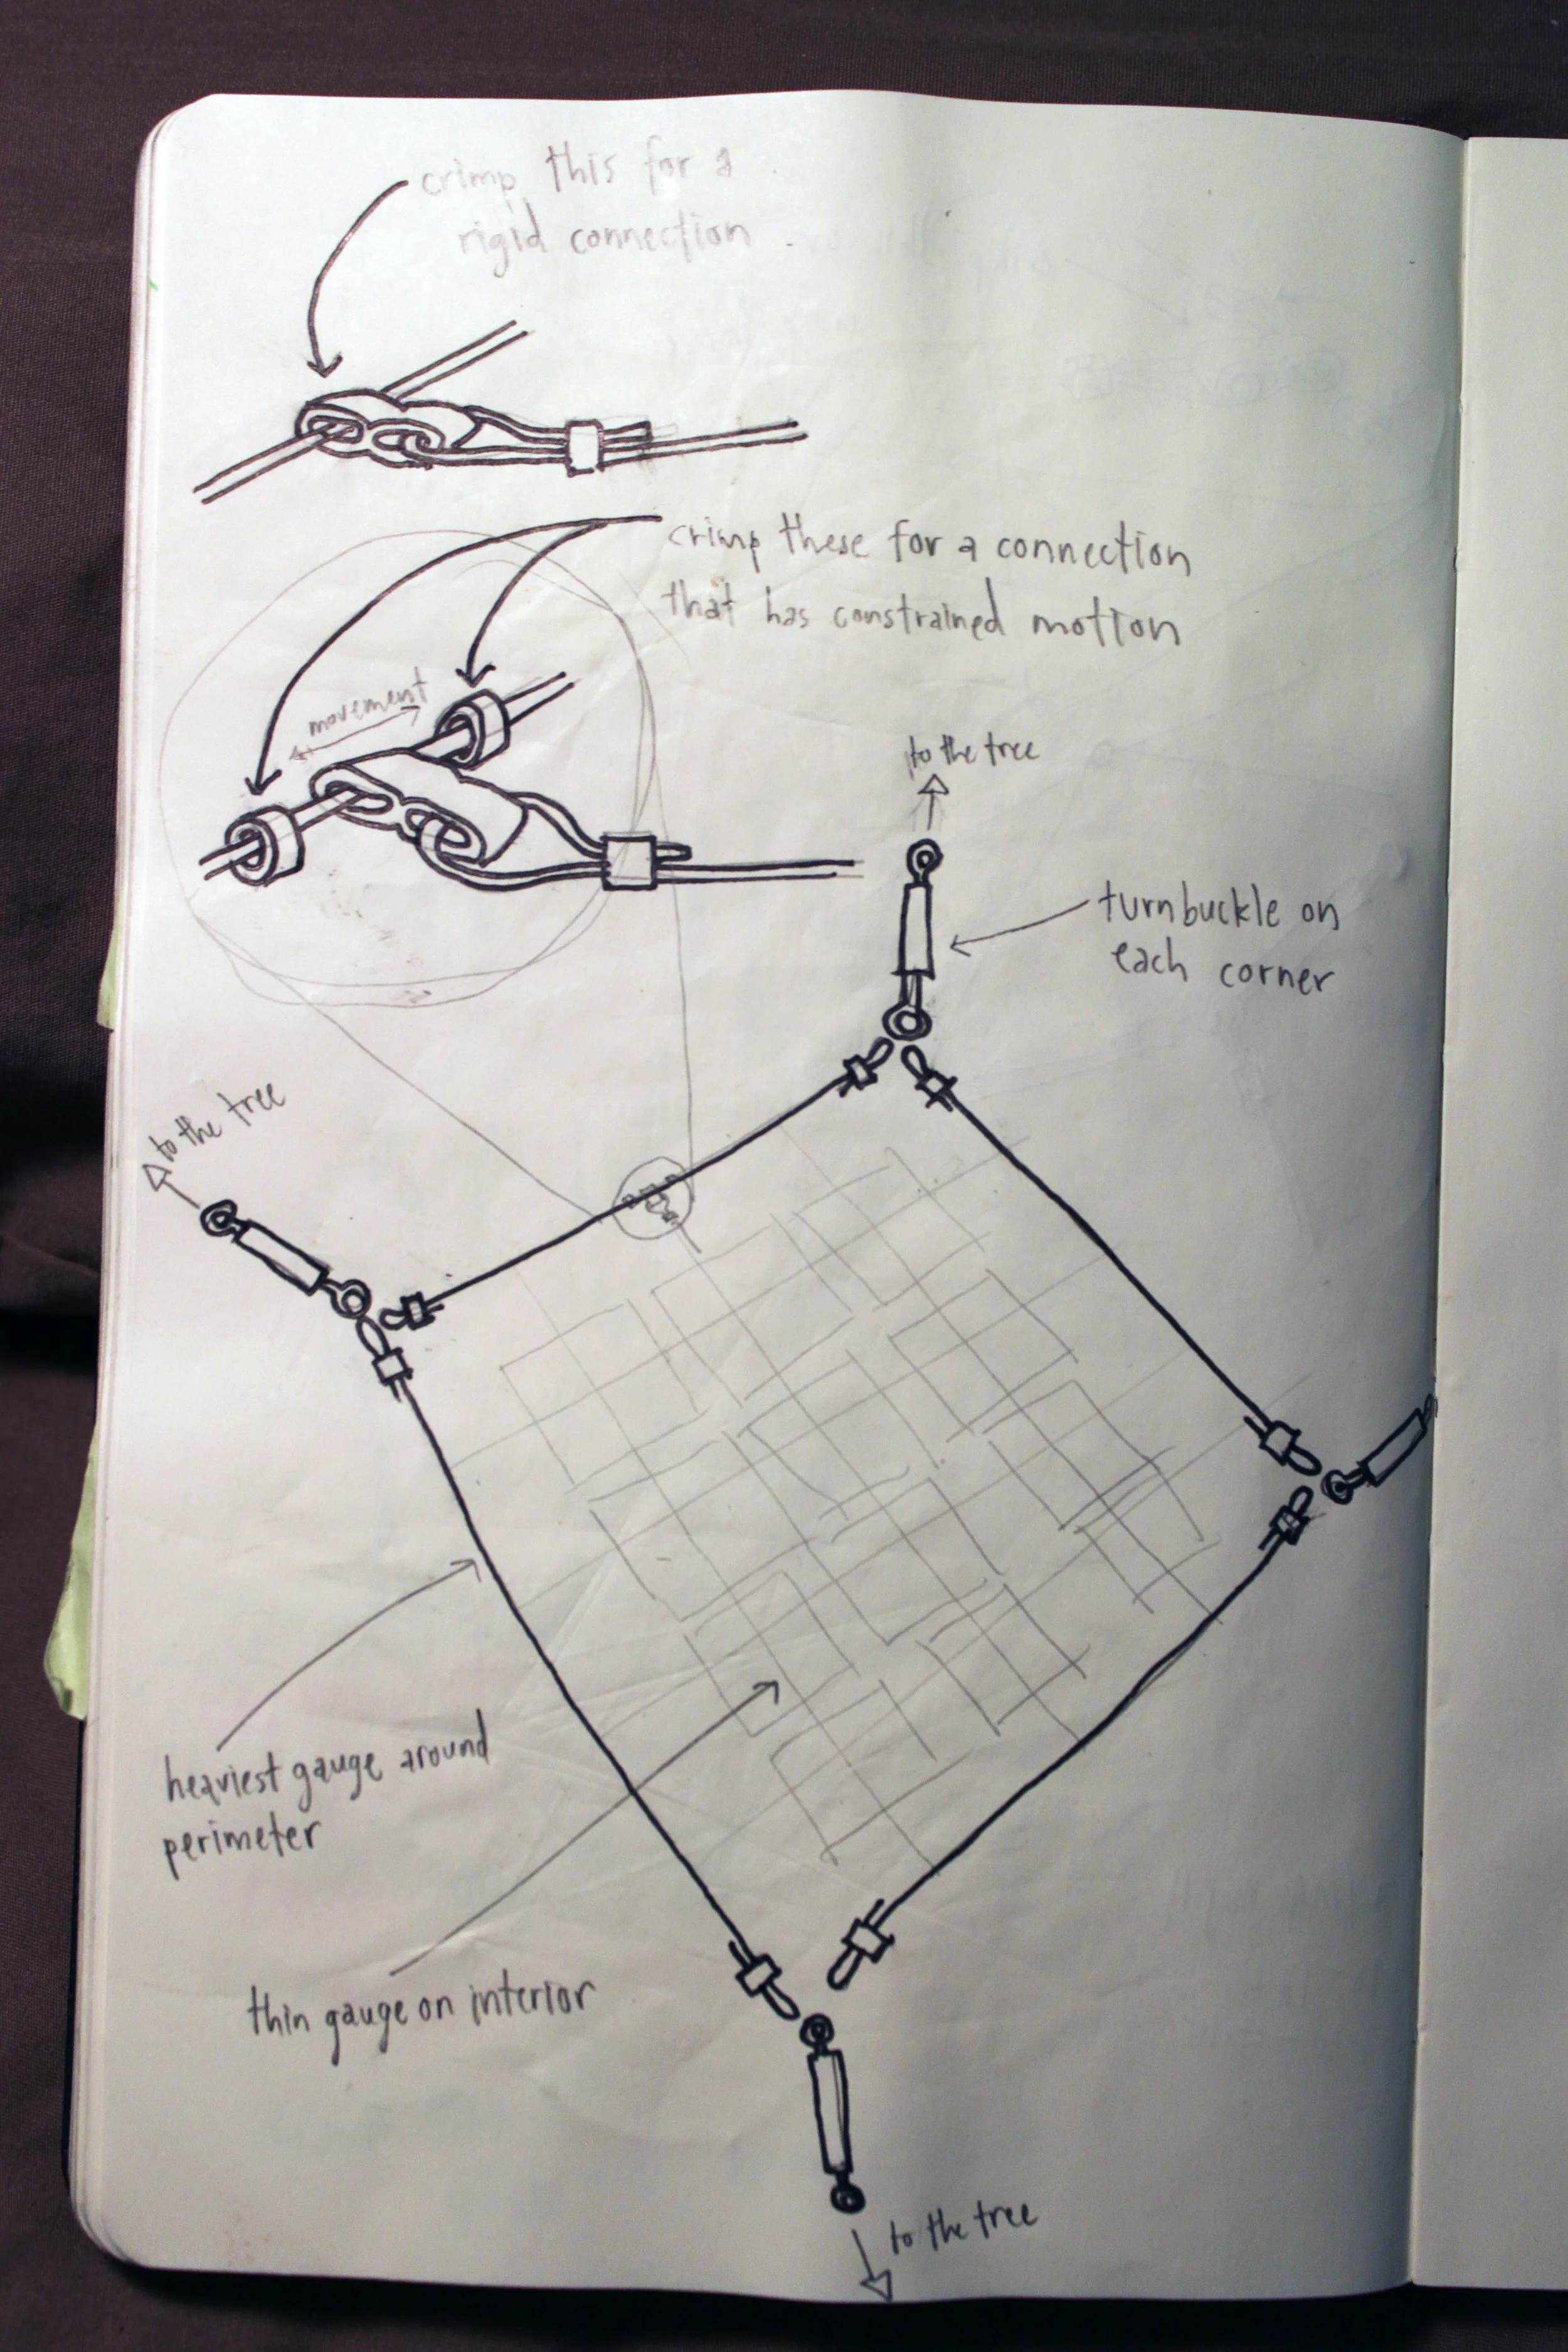 crimp this for a
rigid connection
crimp these for a connection
that has constrained motion
movement
to the tree
turnbuckle on
each corner
to the tree
heaviest gauge around
perimeter
thin gauge on interior
to the tree